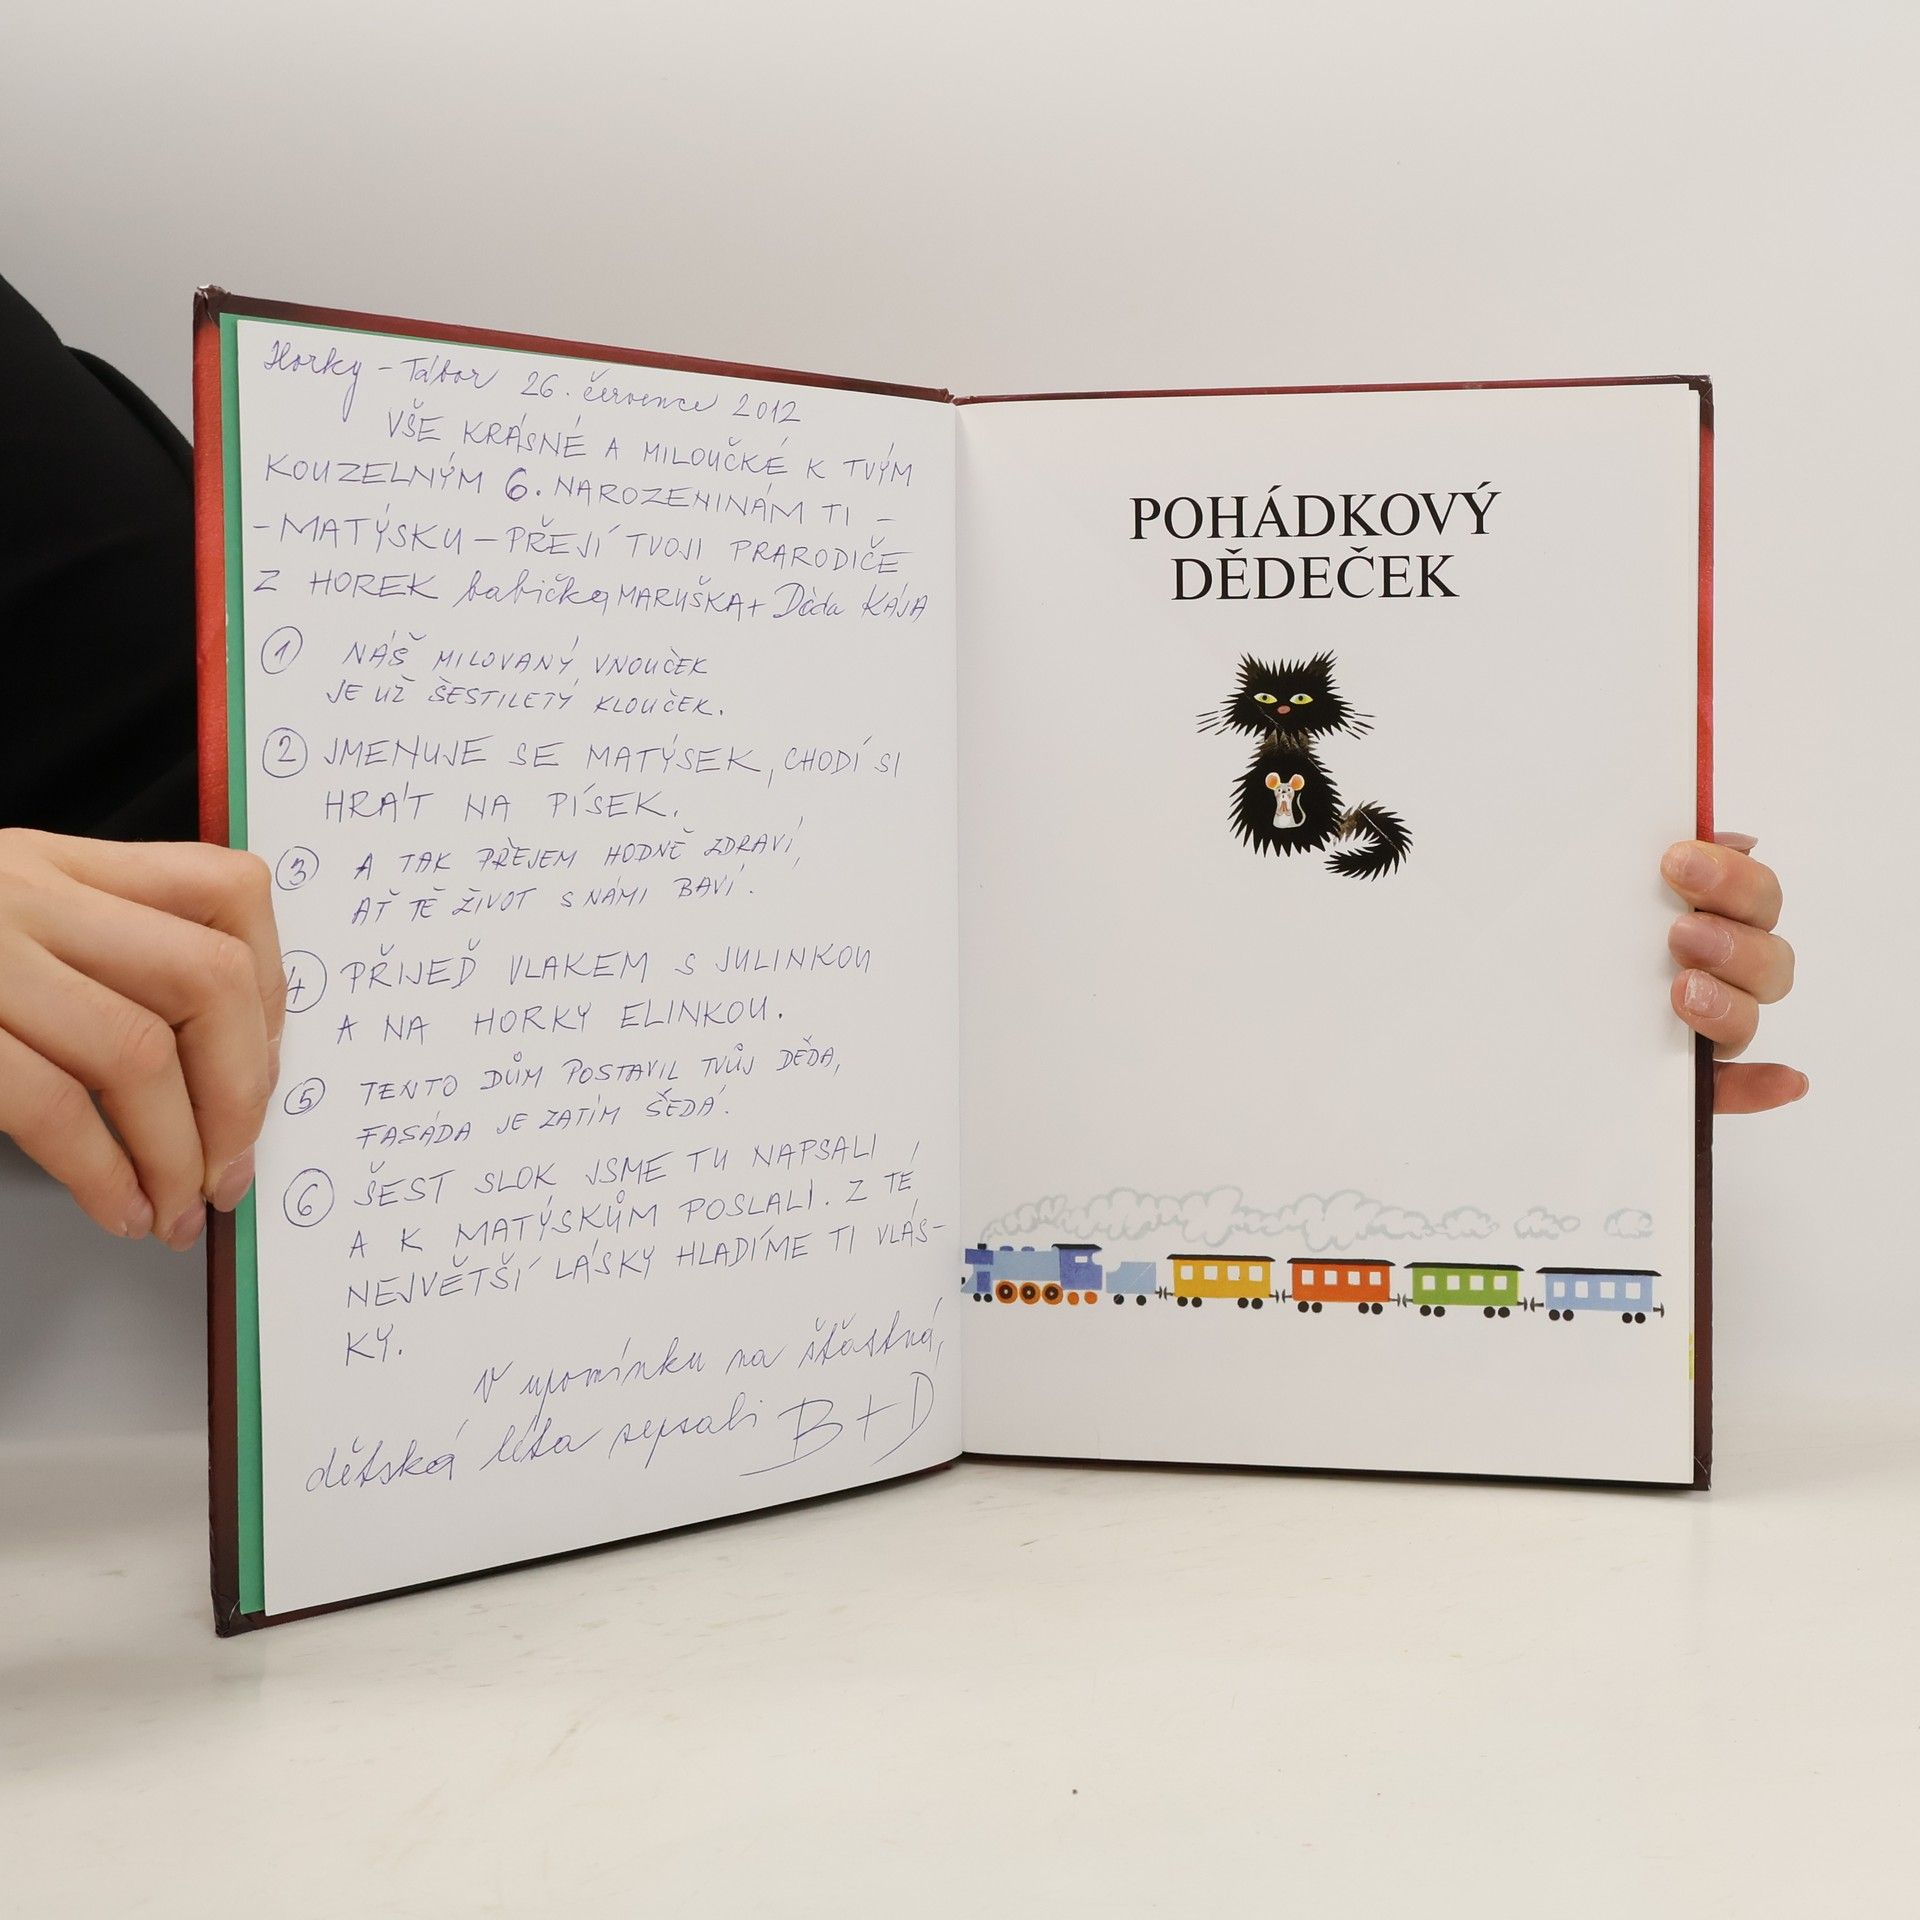 Horky - Tábor 26. července 2012
VŠE KRÁSNÉ A MILOUČKÉ K TVÝM
KOUZELNÝM 6. NAROZENINÁM TI -
- MATÝSKU - PŘEJÍ TVOJI PRARODIČE
Z HOREK babička MARUŠKA + Děda KÁJA
1 NÁŠ MILOVANÝ VNOUČEK
JE UŽ ŠESTILETÝ KLOUČEK.
2 JMENUJE SE MATÝSEK, CHODÍ SI
HRÁT NA PÍSEK.
3 A TAK PŘEJEM HODNĚ ZDRAVÍ,
AŤ TĚ ŽIVOT S NÁMI BAVÍ.
4 PŘIJEĎ VLAKEM S JULINKOU
A NA HORKY ELINKOU.
5 TENTO DŮM POSTAVIL TVŮJ DĚDA,
FASÁDA JE ZATÍM ŠEDÁ.
6 ŠEST SLOK JSME TU NAPSALI
A K MATÝSKŮM POSLALI. Z TÉ
NEJVĚTŠÍ LÁSKY HLADÍME TI VLÁS-
KY.
V upomínku na šťastná,
dětská léta sepsali B + D
POHÁDKOVÝ
DĚDEČEK